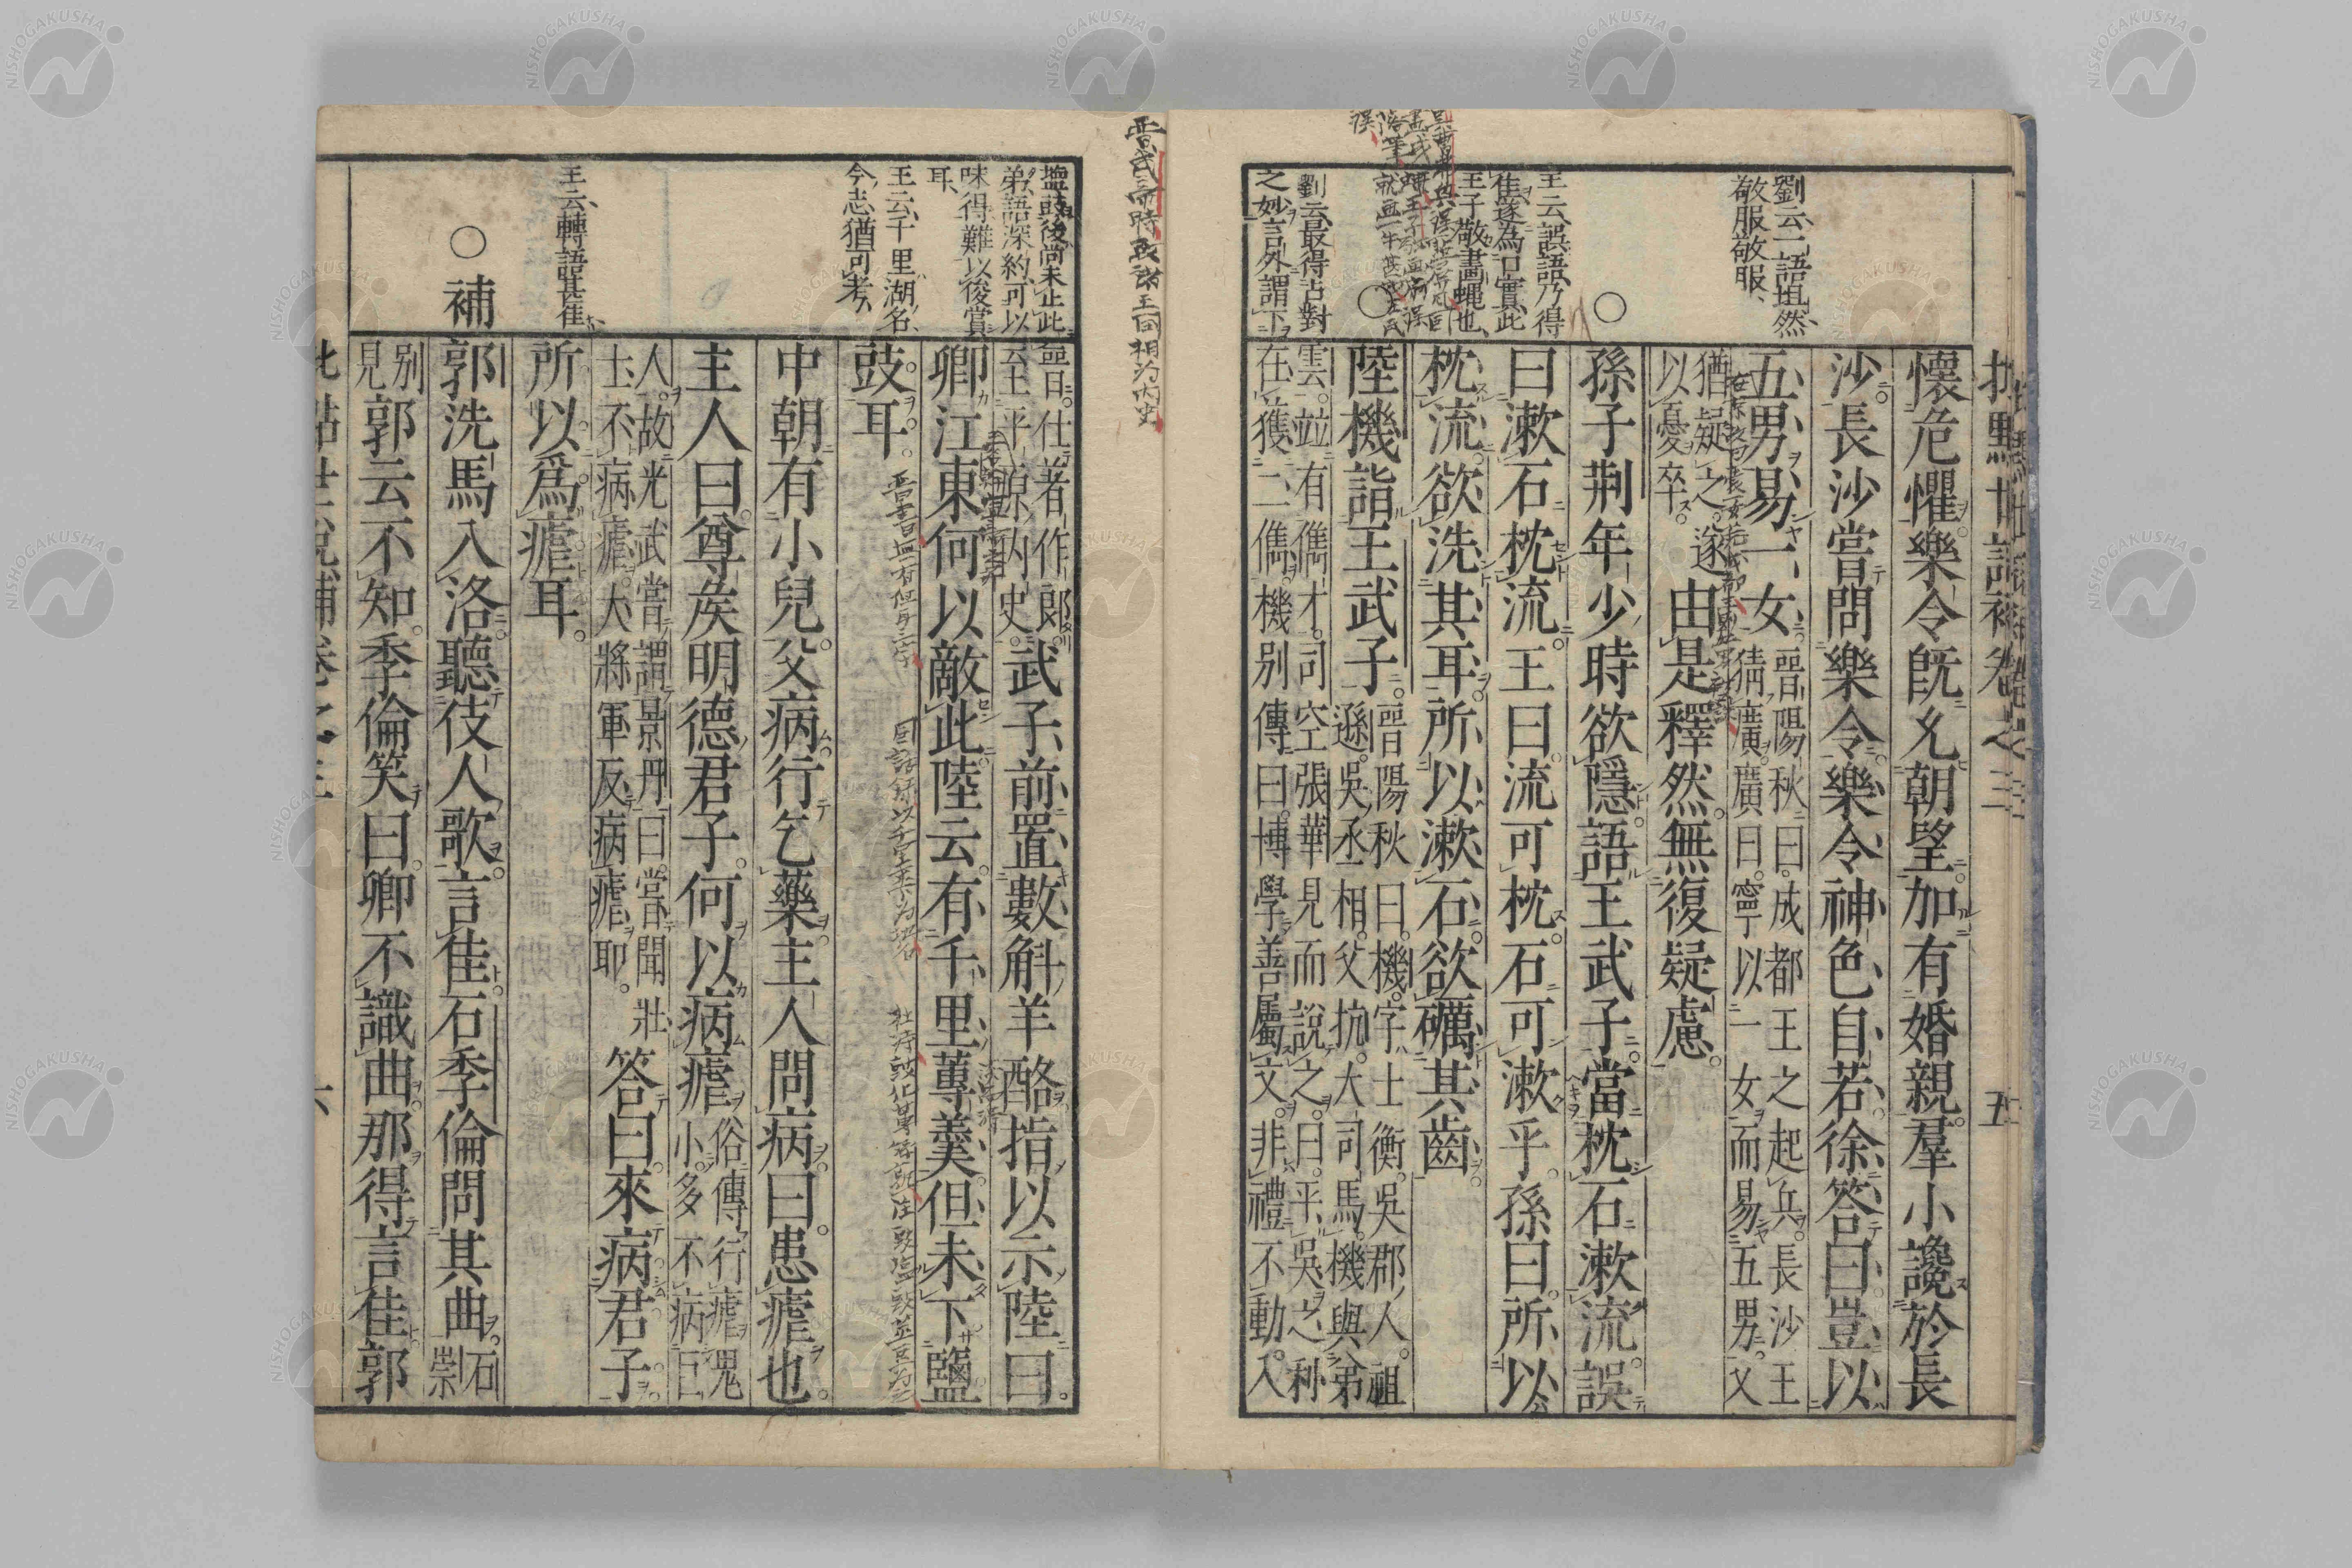 批點世說補卷之三 五
劉云二語坦然
敬服敬服
懷危懼樂令旣允朝望加有婚親羣小讒於長
沙長沙嘗問樂令樂令神色自若徐答曰豈以
五男易一女
晉陽秋曰成都王之起兵長沙王
猜廣廣曰寧以一女而易五男乂
猶疑之遂
以憂卒
由是釋然無復疑慮
○
孫子荆年少時欲隱語王武子當枕石漱流誤
王云誤語乃得
佳遂為口實此
王子敬畫蠅也
曰漱石枕流王曰流可枕石可漱乎孫曰所以
枕流欲洗其耳所以漱石欲礪其齒
○
陸機詣王武子
晉陽秋曰機字士衡吳郡人祖
遜吳丞相父抗大司馬機與弟
劉云最得占對
之妙言外謂下
雲竝有儁才司空張華見而說之曰平吳之利
在獲二儁機別傳曰博學善屬文非禮不動入
晉武帝時
王
相為內史
鹽豉後尚未止此
第語深約可以
味得難以後賞
耳
晉仕著作郎
至平原內史
武子前置數斛羊酪指以示陸曰
卿江東何以敵此陸云有千里蓴羹但未下鹽
王云千里湖名
今志猶可考
豉耳
中朝有小兒父病行乞藥主人問病曰患瘧也
主人曰尊矦明德君子何以病瘧
俗傳行瘧鬼
小多不病巨
人故光武嘗謂景丹曰嘗聞壯
士不病瘧大將軍反病瘧耶
答曰來病君子
王云轉語甚佳
所以爲瘧耳
○補
郭洗馬入洛聽伎人歌言佳石季倫問其曲
石
崇
別
見
郭云不知季倫笑曰卿不識曲那得言佳郭
批點世說補卷之三 六